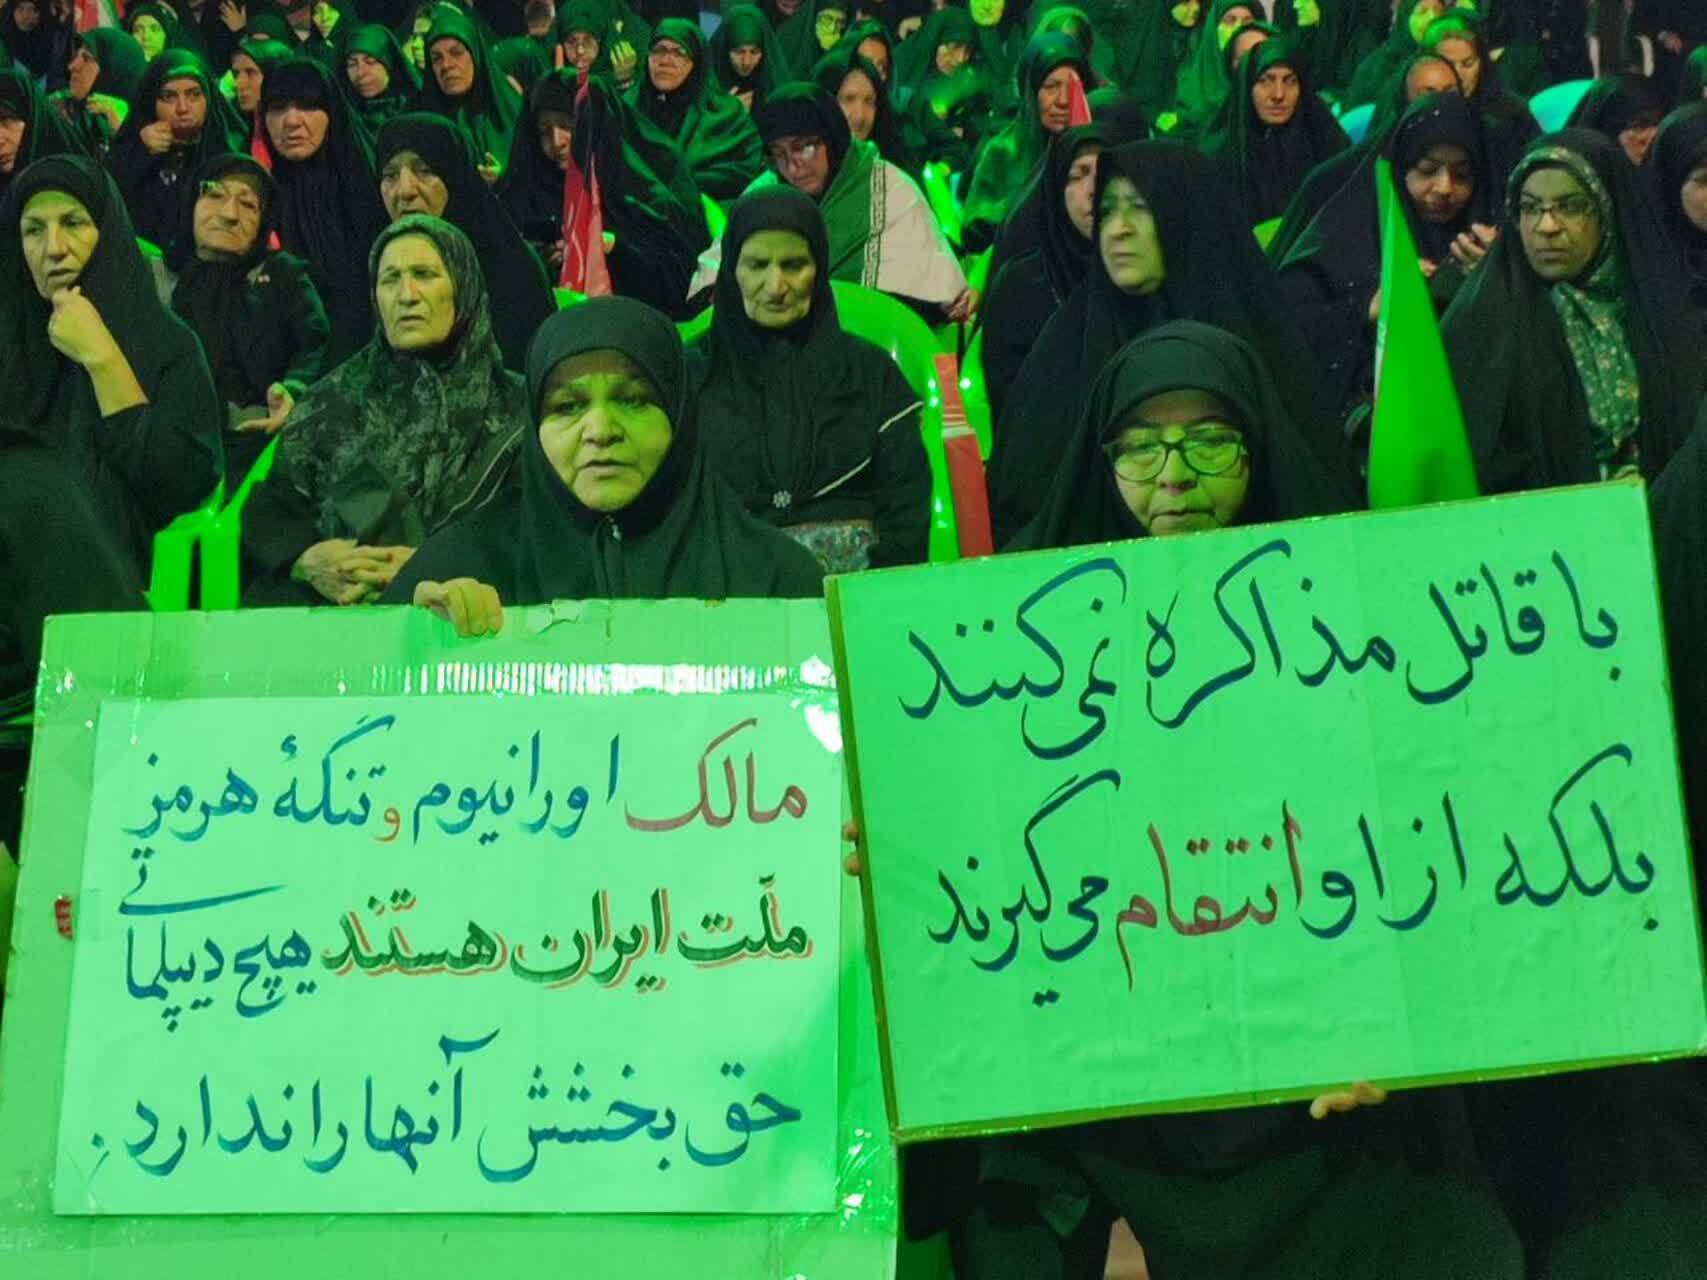 با قاتل مذاکره نمی‌کنند
بلکه از او انتقام می‌گیرند
مالک اورانیوم و تنگهٔ هرمز
ملّت ایران هستند هیچ دیپلماتی
حق بخشش آنها را ندارد.